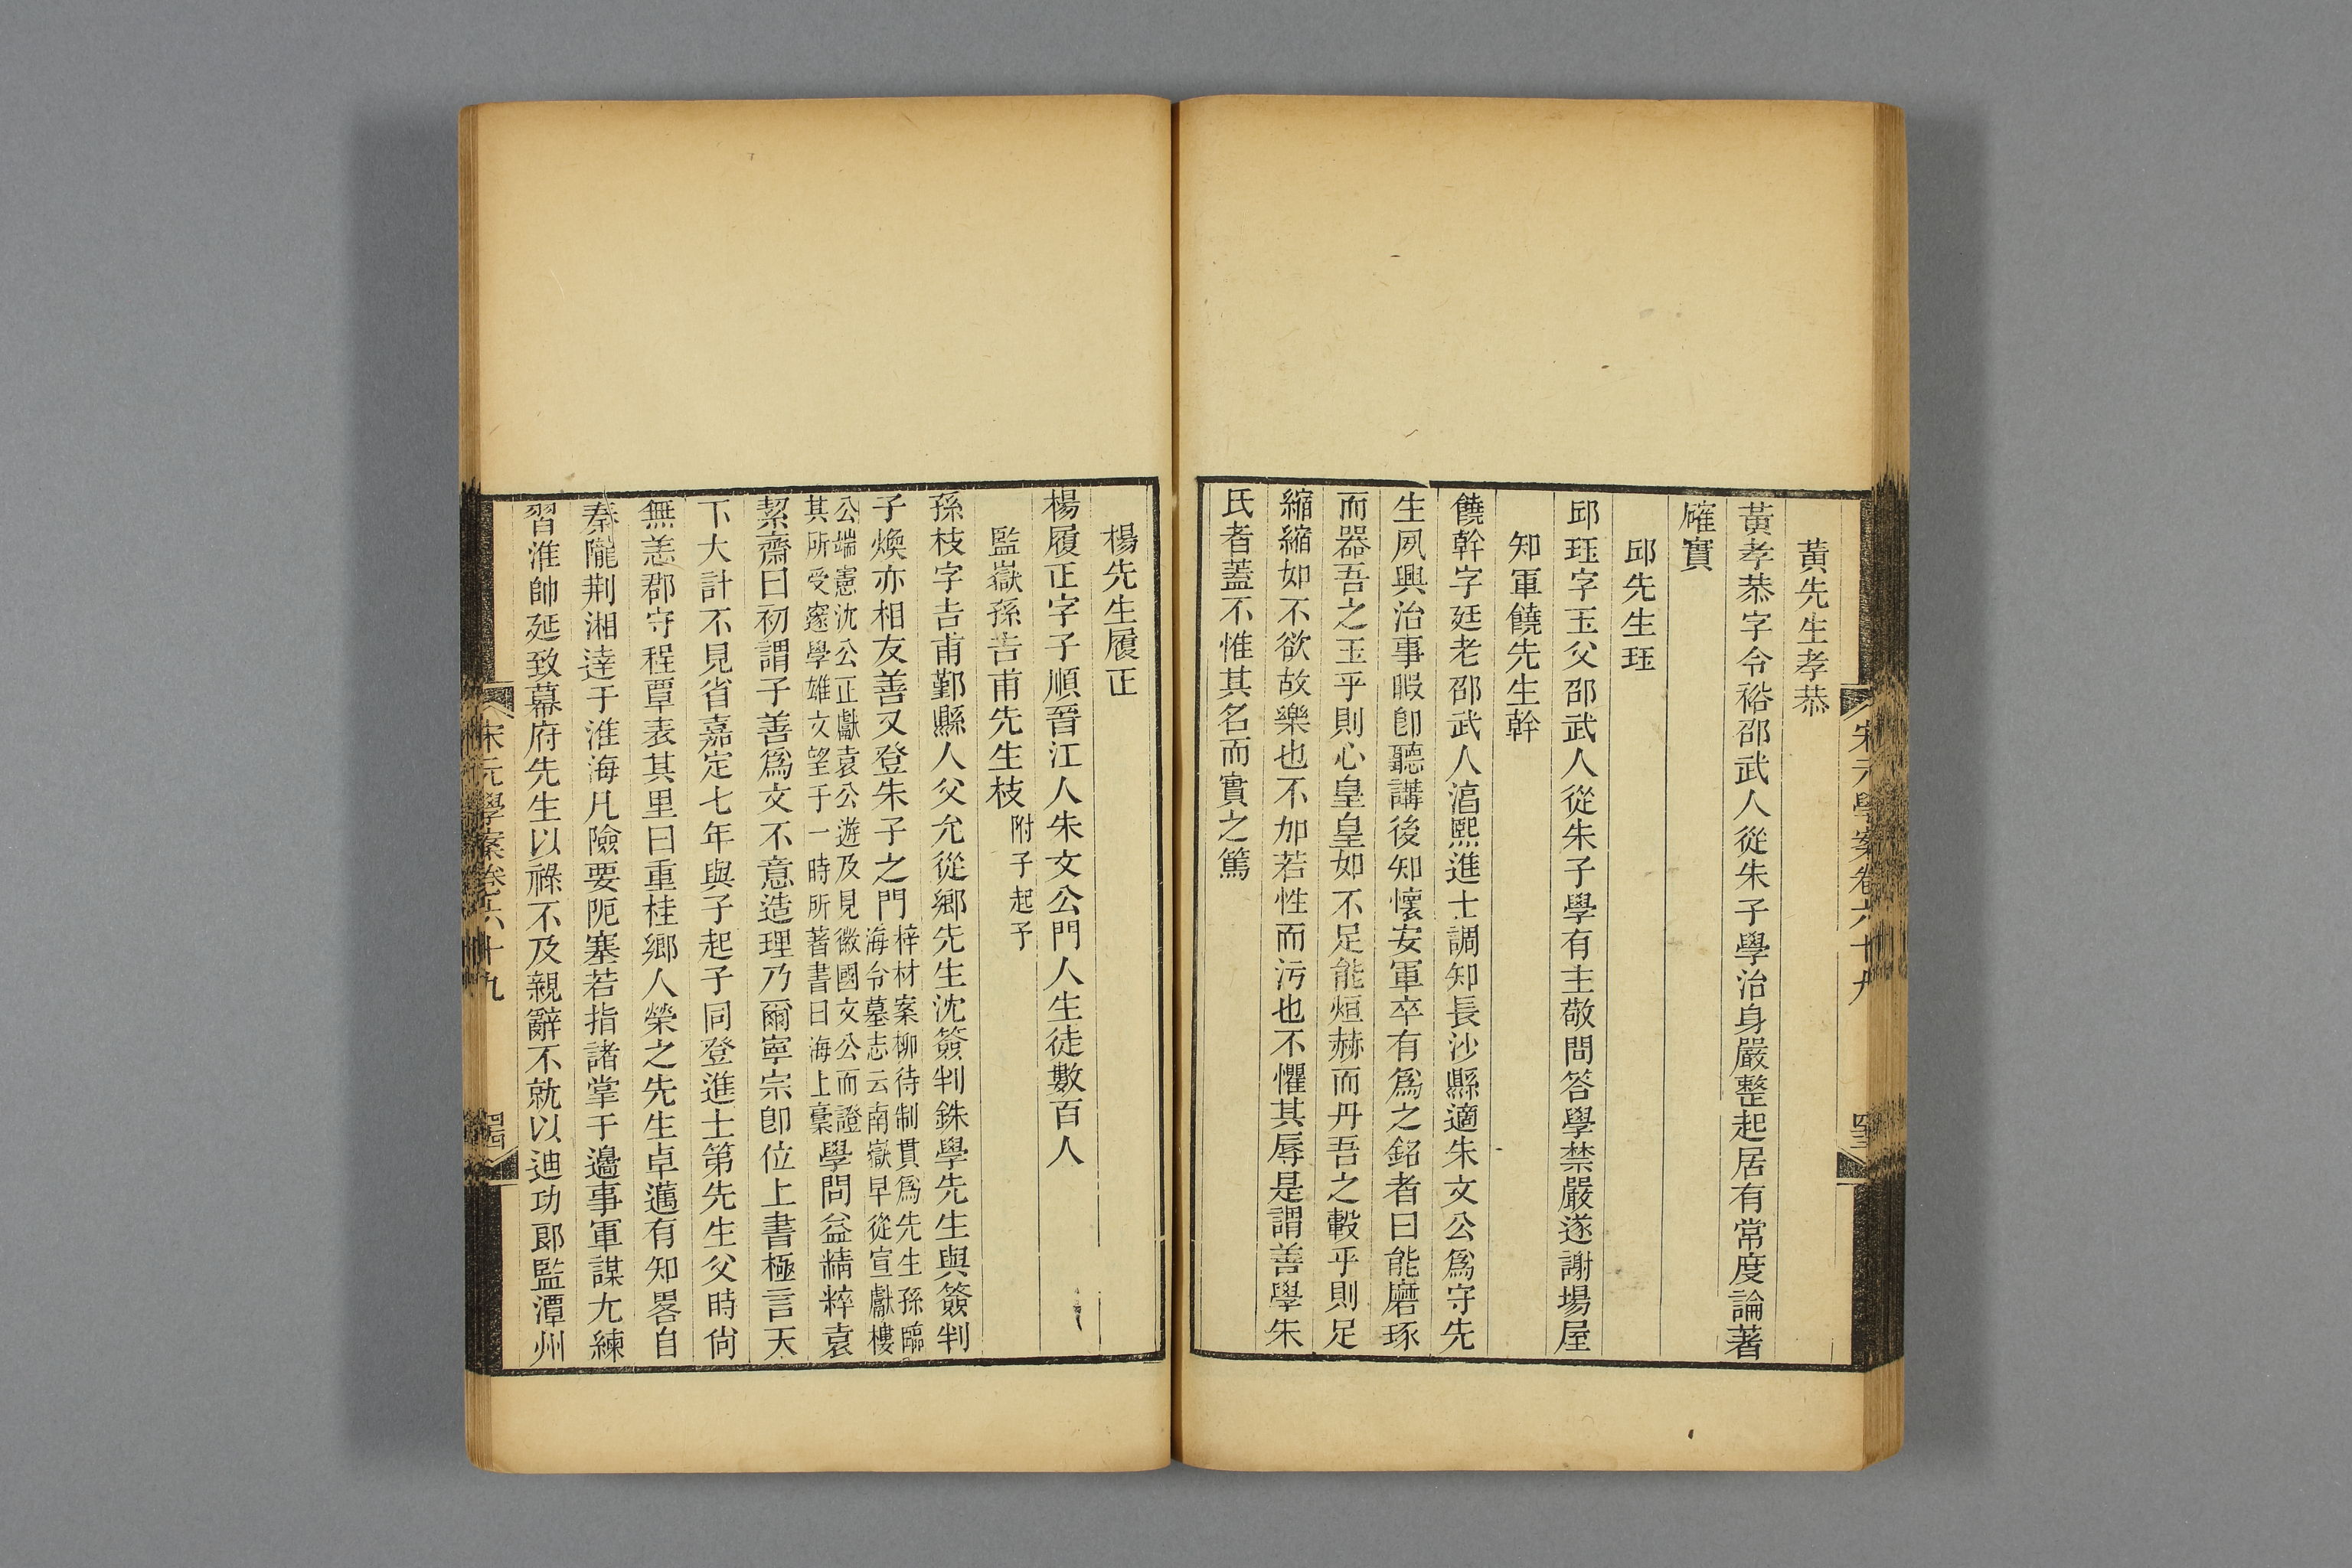 黃先生孝恭
黃孝恭字令裕邵武人從朱子學治身嚴整起居有常度論著
確實
邱先生珏
邱珏字玉父邵武人從朱子學有主敬問答學禁嚴遂謝場屋
知軍饒先生幹
饒幹字廷老邵武人淳熙進士調知長沙縣適朱文公爲守先
生夙興治事暇卽聽講後知懷安軍卒有爲之銘者曰能磨琢
而器吾之玉乎則心皇皇如不足能烜赫而丹吾之轂乎則足
縮縮如不欲故樂也不加若性而污也不懼其辱是謂善學朱
氏者蓋不惟其名而實之篤
宋元學案卷六十九
楊先生履正
楊履正字子順晉江人朱文公門人生徒數百人
監嶽孫吉甫先生枝附子起予
孫枝字吉甫鄞縣人父允從鄉先生沈簽判銖學先生與簽判
子煥亦相友善又登朱子之門梓材案柳待制貫爲先生孫臨
海令墓志云南嶽早從宣獻樓
公端憲沈公正獻袁公遊及見徽國文公而證
其所受邃學雄文望于一時所著書曰海上稾學問益精粹袁
絜齋曰初謂子善爲文不意造理乃爾寧宗卽位上書極言天
下大計不見省嘉定七年與子起予同登進士第先生父時尙
無恙郡守程覃表其里曰重桂鄉人榮之先生卓邁有知畧自
秦隴荆湘達于淮海凡險要阨塞若指諸掌于邊事軍謀尤練
習淮帥延致幕府先生以祿不及親辭不就以迪功郎監潭州
宋元學案卷六十九